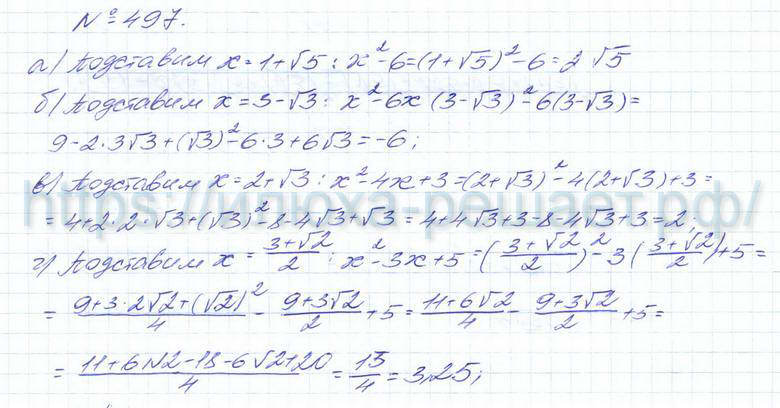 № 497.
а) Подставим x = 1+√5 : x²-6=(1+√5)²-6=2√5
б) Подставим x = 3-√3 : x²-6x (3-√3)²-6(3-√3)=
9-2·3√3+(√3)²-6·3+6√3=-6;
в) Подставим x=2+√3 : x²-4x+3=(2+√3)²-4(2+√3)+3=
https://илюха-решает.рф/
=4+2·2·√3+(√3)²-8-4√3+√3=4+4√3+3-8-4√3+3=2;
г) Подставим x = (3+√2)/2 : x²-3x+5=((3+√2)/2)²-3((3+√2)/2)+5=
= (9+3·2√2+(√2)²)/4 - (9+3√2)/2 +5= (11+6√2)/4 - (9+3√2)/2 +5=
= (11+6√2-18-6√2+20)/4 = 13/4 = 3,25;